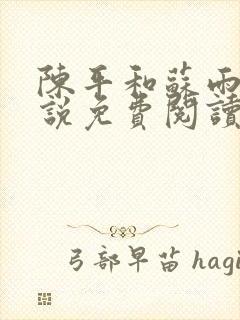 陳平和蘇雨
說免費閱讀
弓部早苗 hagi